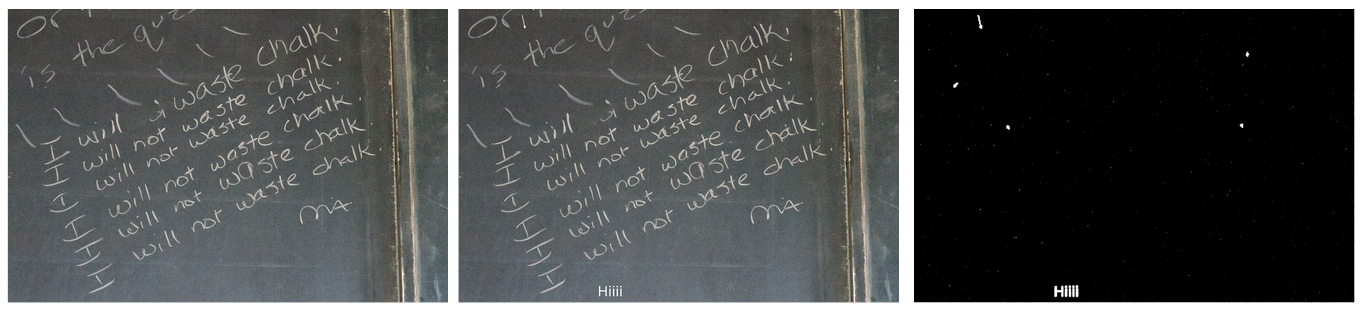 is the
I will i waste chalk.
I will not waste chalk.
I will not waste chalk.
I will not waste chalk.
I will not waste chalk.
I will not waste chalk.
is the
I will i waste chalk.
I will not waste chalk.
I will not waste chalk.
I will not waste chalk.
I will not waste chalk.
I will not waste chalk.
Hiiii
Hiiii